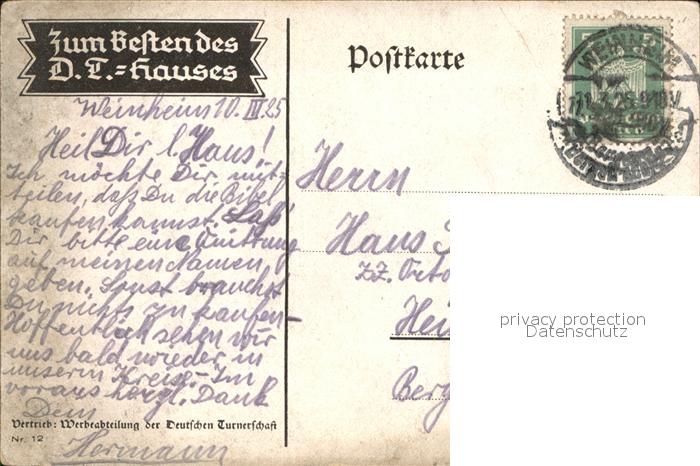 Zum Besten des
D. T.=Hauses
Postkarte
WEINHEIM
Weinheim 10. III. 25
Heil Dir l. Hans!
Ich möchte Dir mit-
teilen, daß Du die Bibel
kaufen kannst. Laß
Dir bitte eine Quittung
auf meinen Namen
geben. Sonst brauchst
Du nichts zu kaufen-
Hoffentlich sehen wir
uns bald wieder in
unserm Kreise. - Im
voraus herzl. Dank
Dein
Hermann
Vertrieb: Werbeabteilung der Deutschen Turnerschaft
Nr. 12
Herrn
Hans
z.Z.
Hei
Berg
privacy protection
Datenschutz